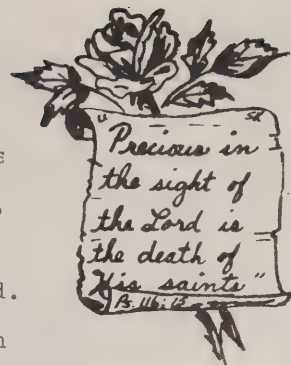 "Precious in
the sight of
the Lord is
the death of
His saints"
Ps. 116:15